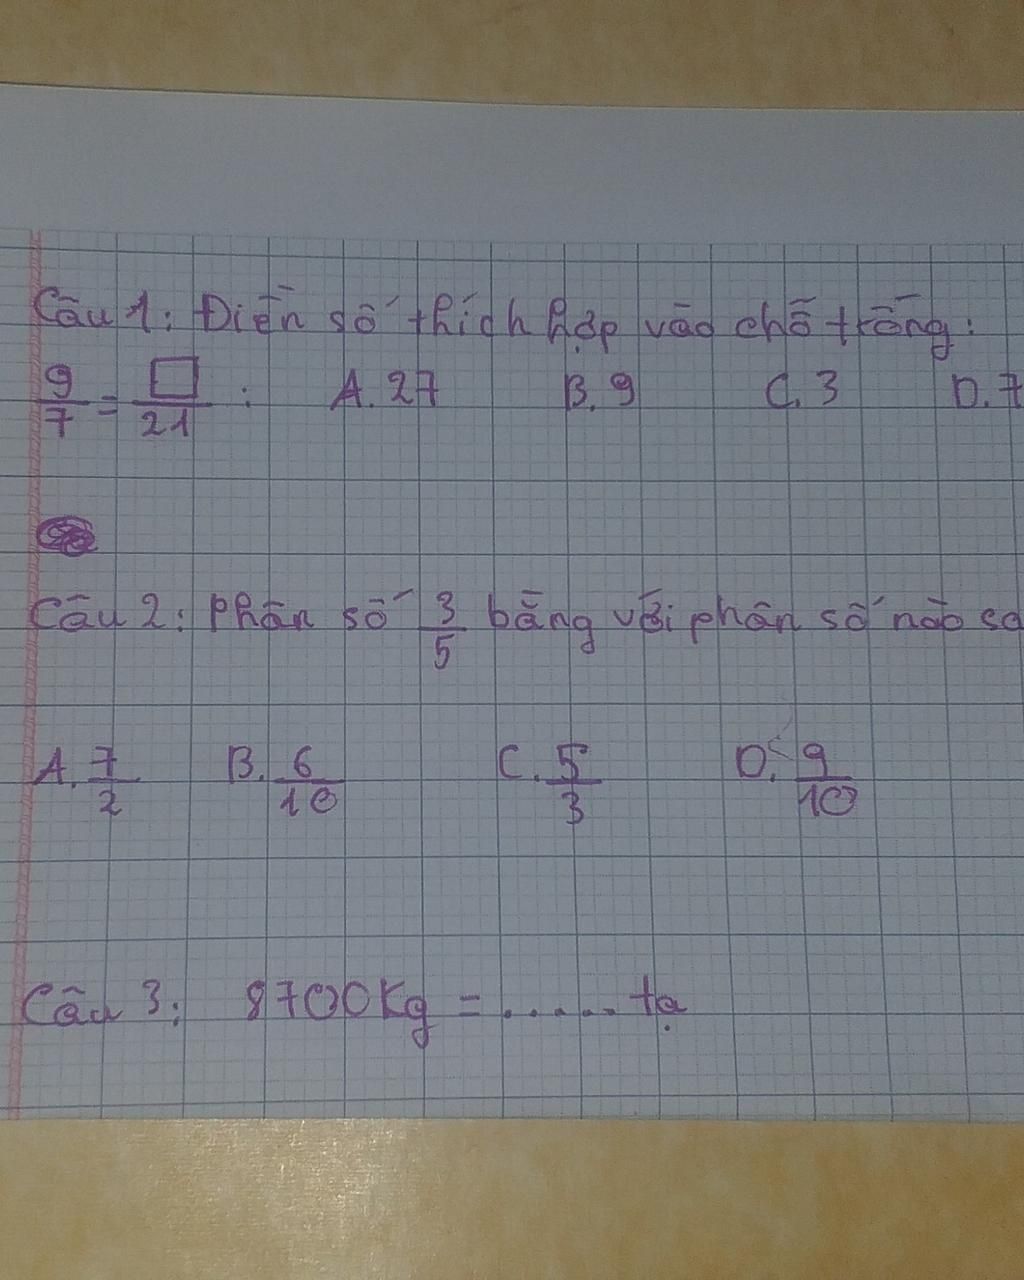 Câu 1: Điền số thích hợp vào chỗ trống:
9/7 = □/21 : A. 27 B. 9 C. 3 D. 7
Câu 2: Phân số 3/5 bằng với phân số nào sa
A. 7/2 B. 6/10 C. 5/3 D. 9/10
Câu 3: 8700Kg = ..... tạ